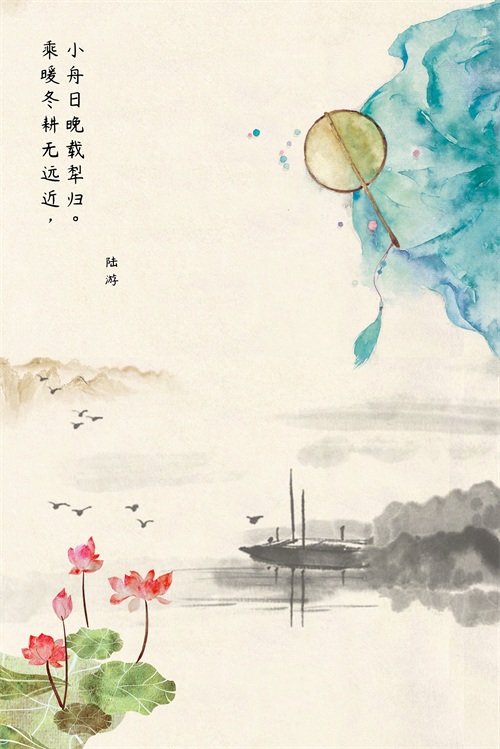 乘暖冬耕无远近，
小舟日晚载犁归。
陆游